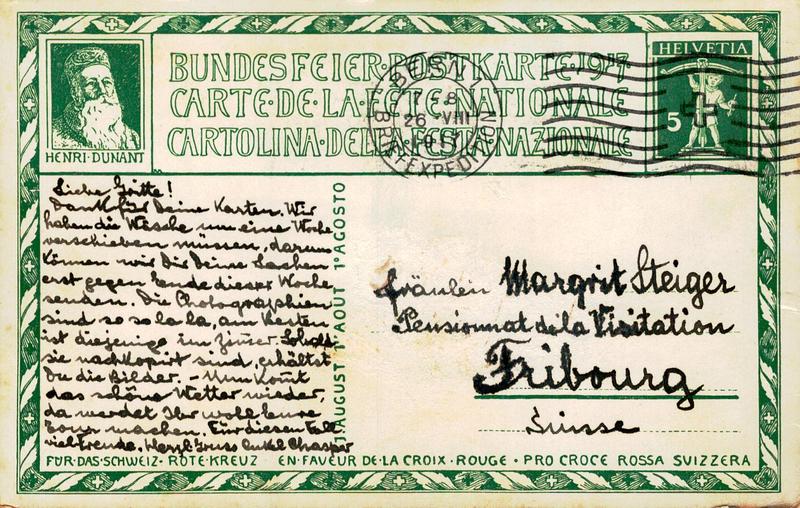 HENRI·DUNANT
BUNDESFEIER·POSTKARTE·1917
CARTE·DE·LA·FETE·NATIONALE
CARTOLINA·DELLA·FESTA·NAZIONALE
BRIEFEXPEDITION
26 VIII
HELVETIA
5
Liebe Gritte!
Dank für Deine Karten. Wir
haben die Wäsche um eine Woche
verschieben müssen, darum
können wir Dir Deine Sachen
erst gegen Ende dieser Woche
senden. Die Photographien
sind so so la la, am besten
ist diejenige im Zimer. Sobald
sie nachkopirt sind, erhältst
Du die Bilder. – Nun komt
das schöne Wetter wieder,
da werdet Ihr wohl eure
Tour machen. Für diesen Fall
viel Freude. Herzl. Gruss Onkel Chasper
1. AUGUST 1er AOUT 1° AGOSTO
Fräulein Margrit Steiger
Pensionnat de la Visitation
Fribourg
Suisse
FÜR·DAS·SCHWEIZ·ROTE·KREUZ EN·FAVEUR·DE·LA·CROIX·ROUGE·PRO CROCE ROSSA SVIZZERA